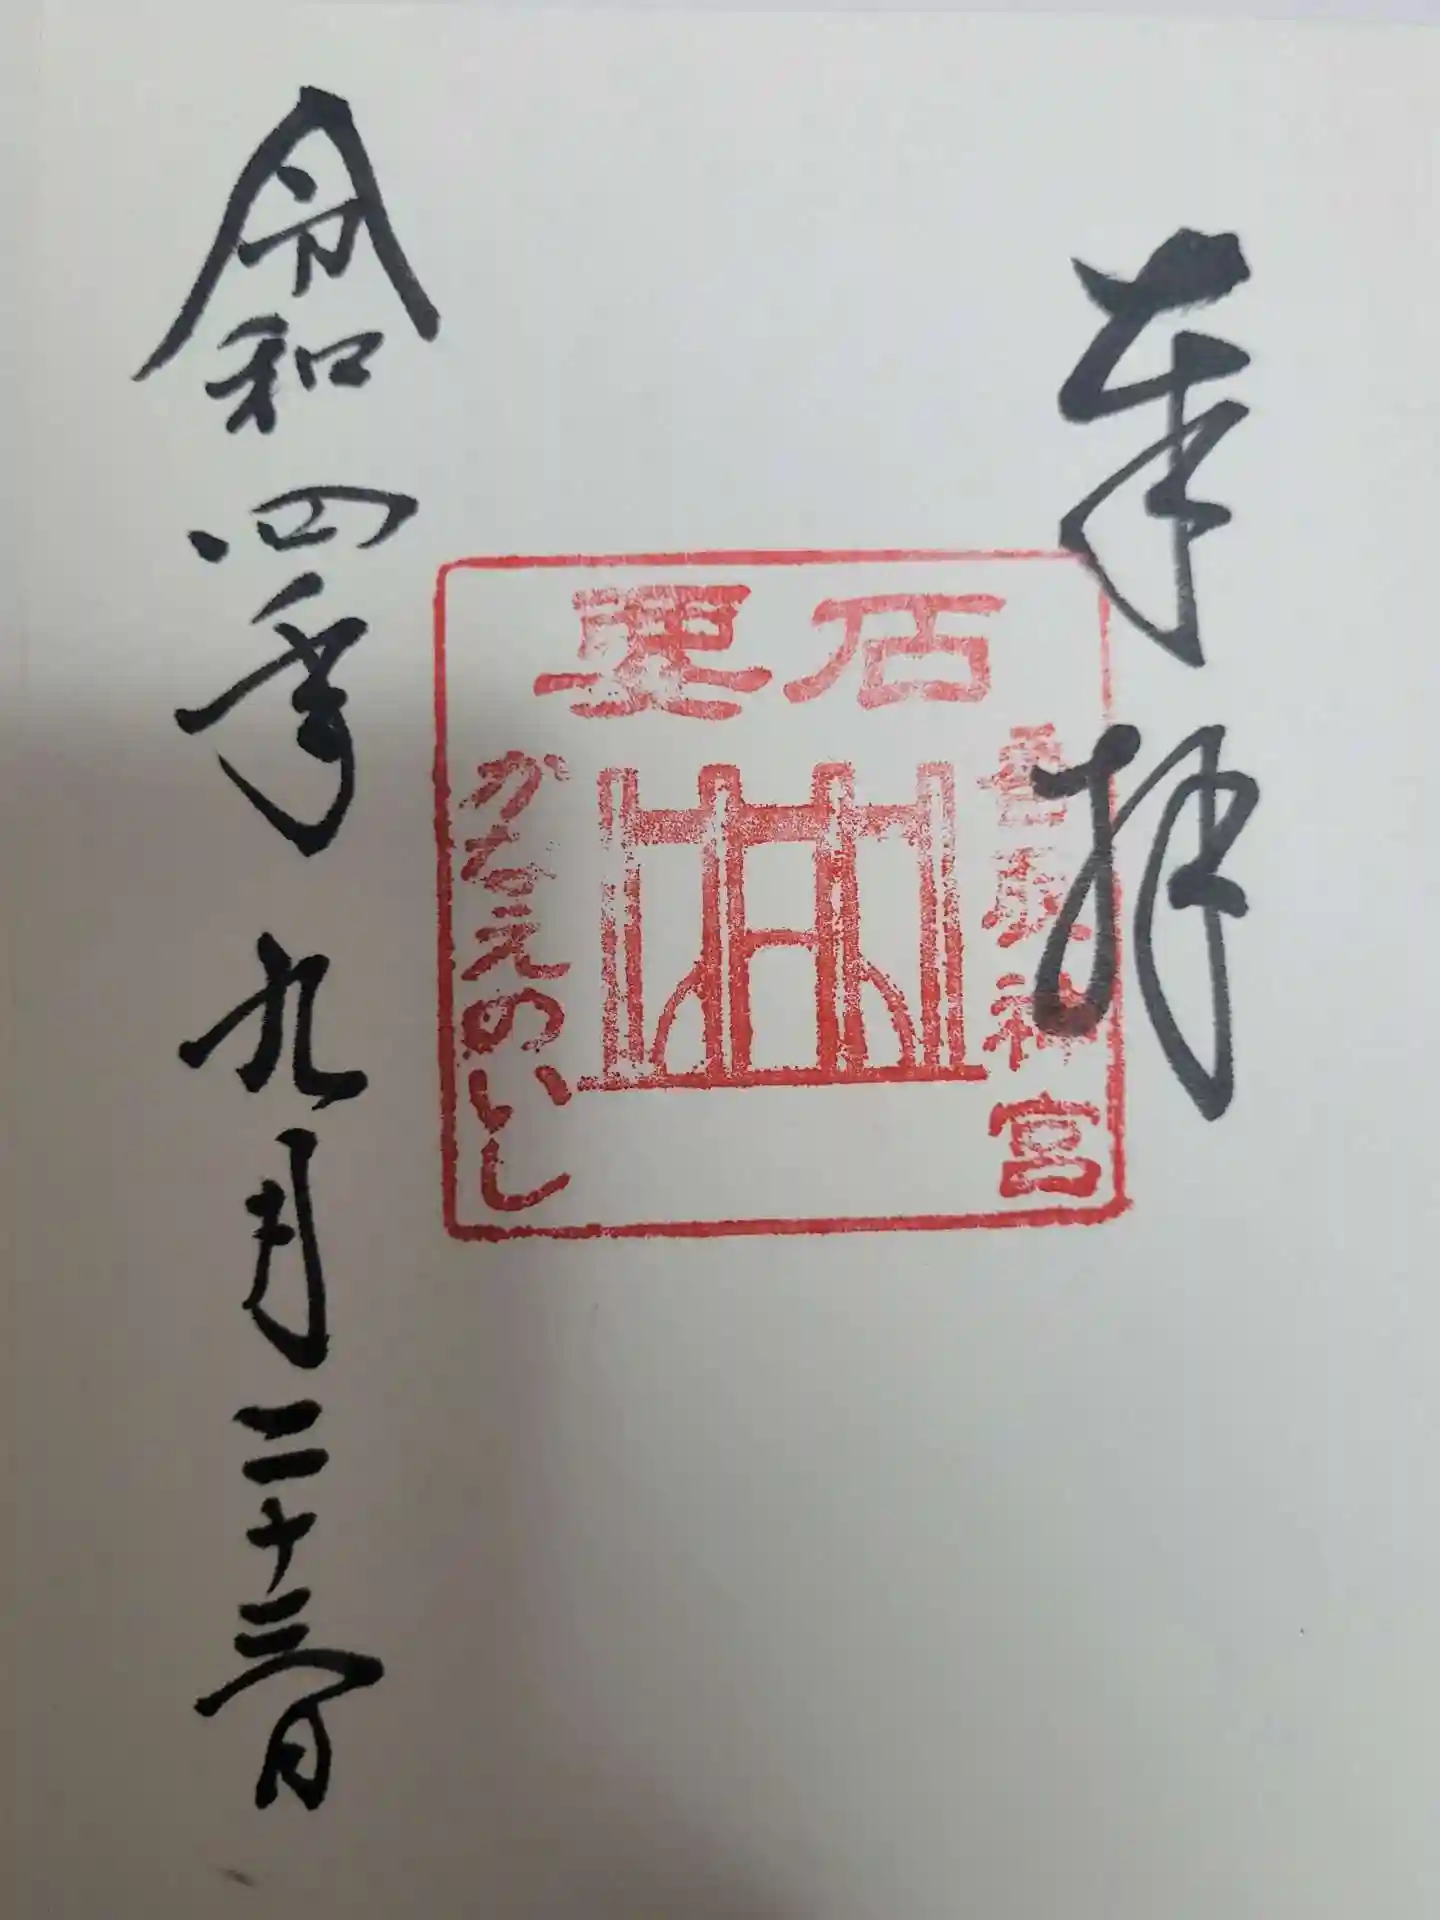 奉拝
要石
香取神宮
かなえのいし
令和四年九月二十三日